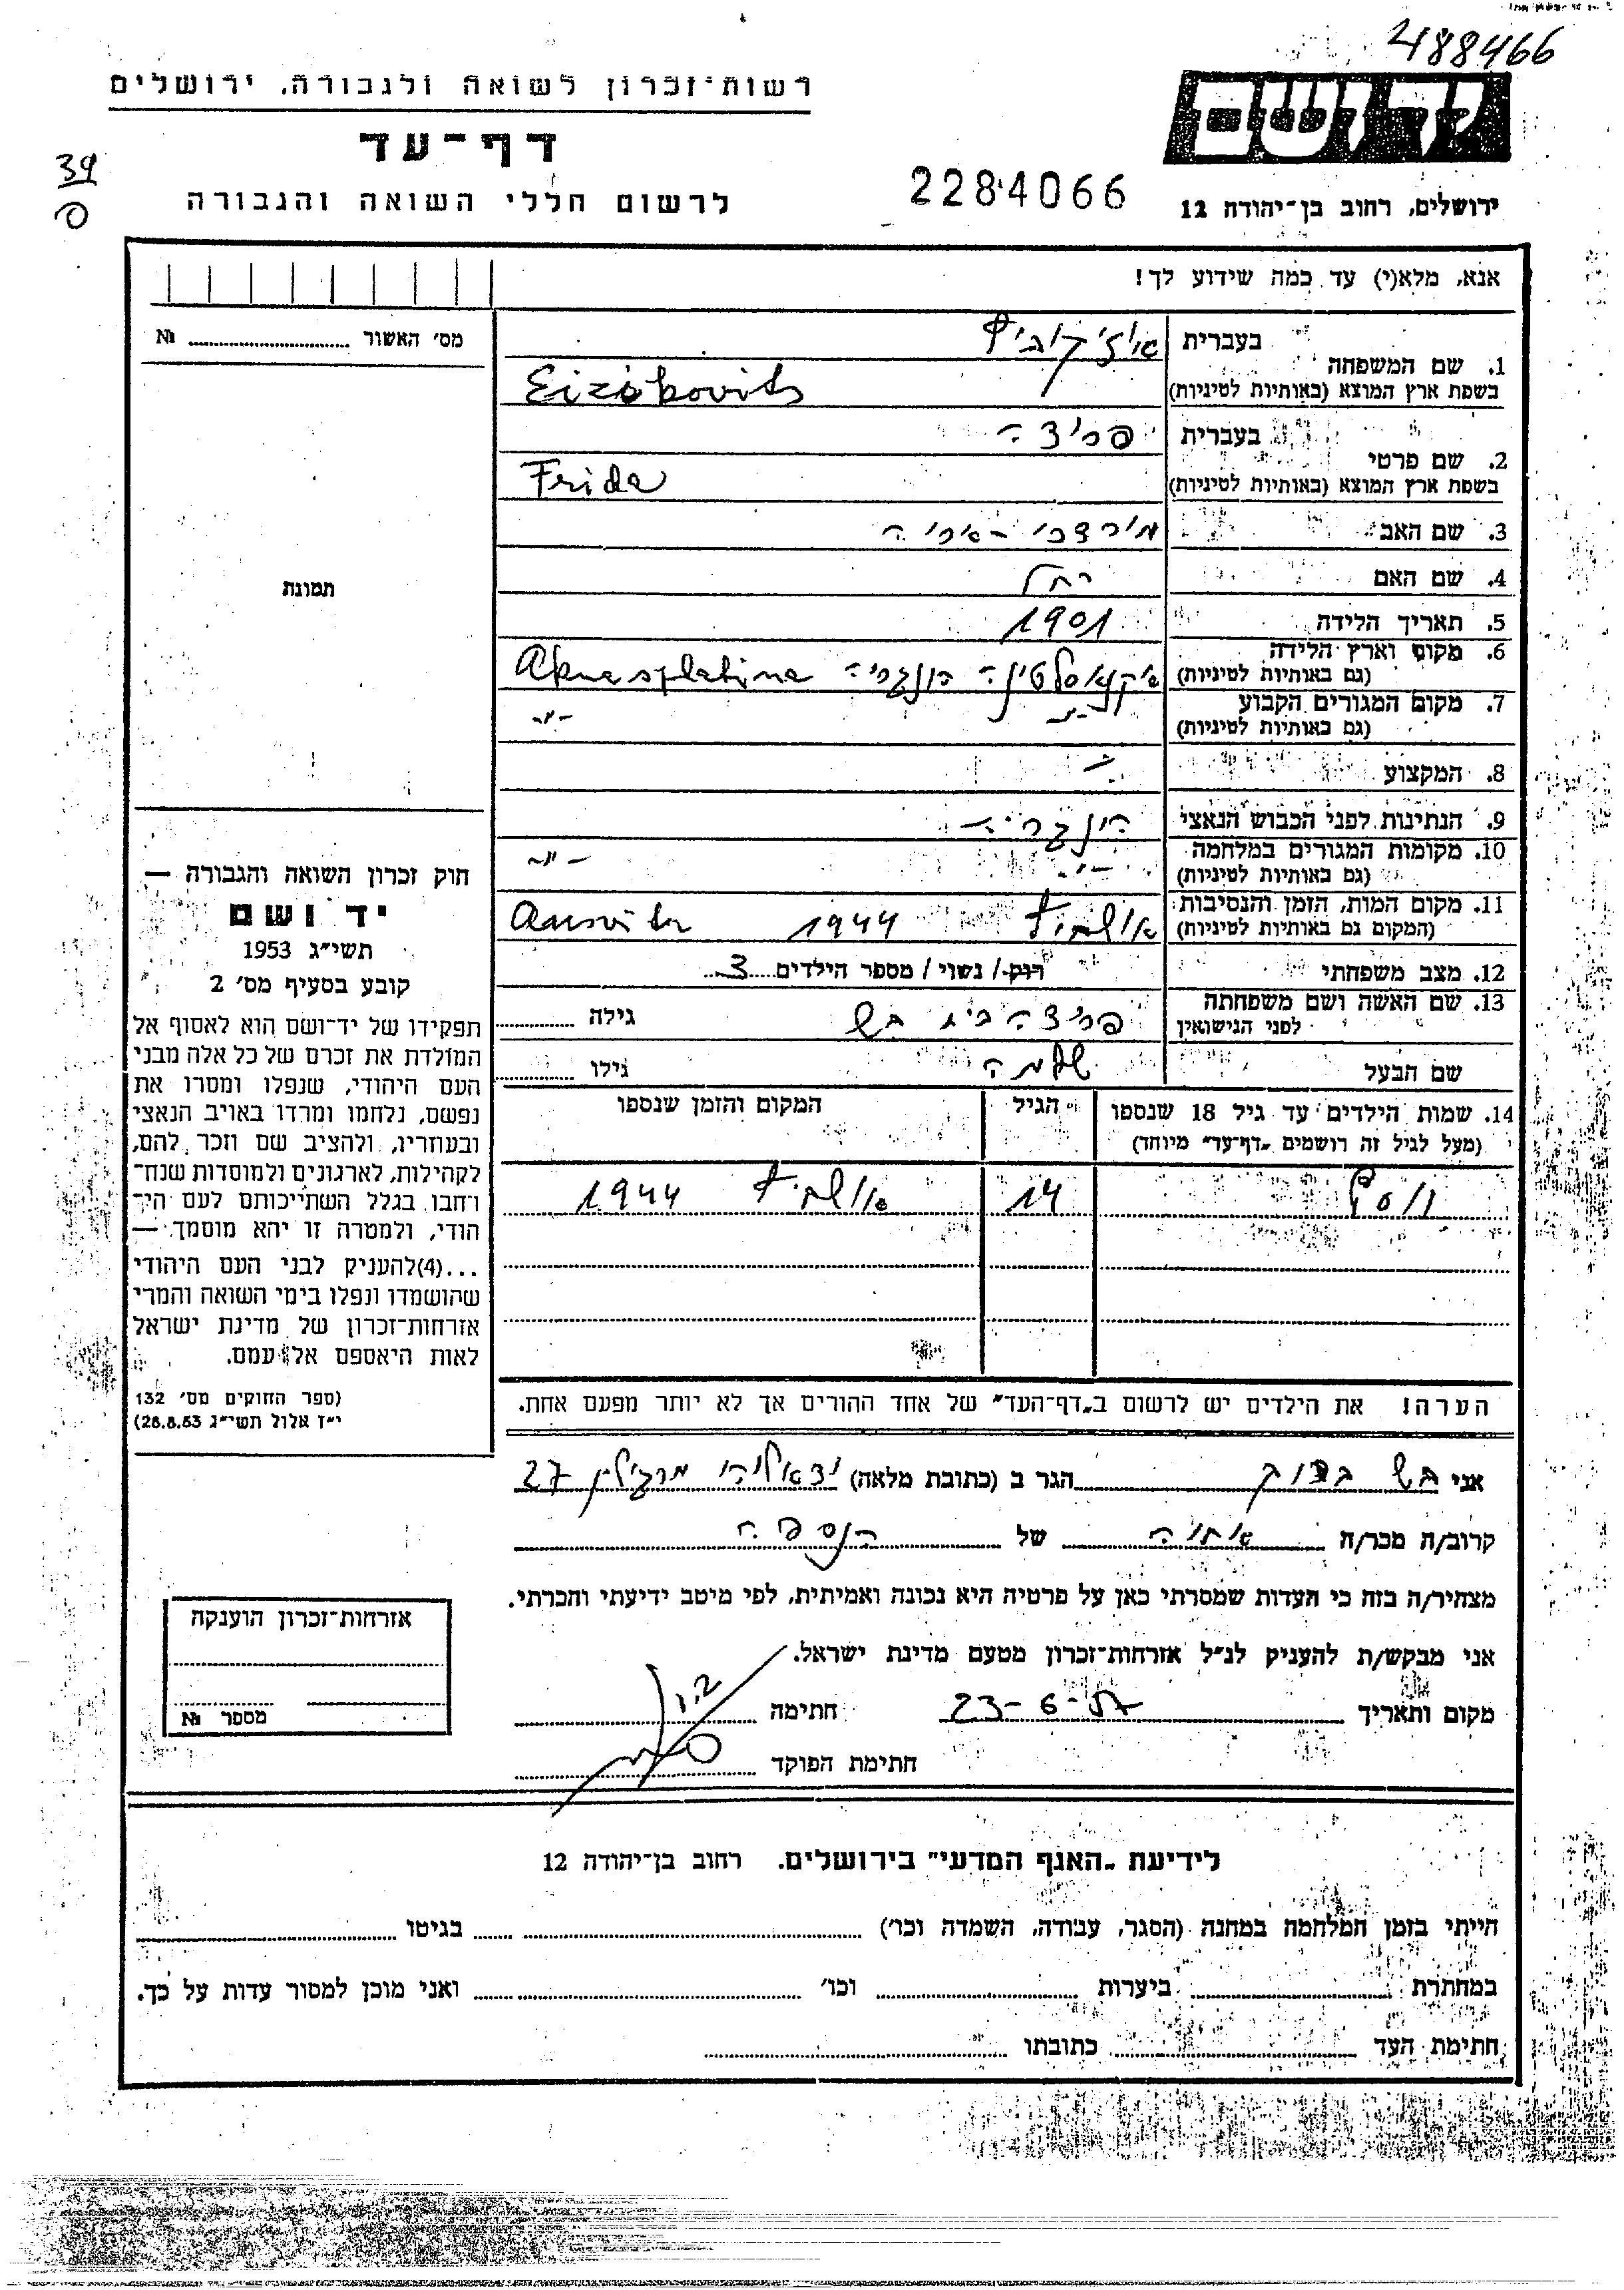 488466
רשות־זכרון לשואה ולגבורה, ירושלים
יד ושם
דף־עד
39
2284066
לרשום חללי השואה והגבורה
ירושלים, רחוב בן־יהודה 12
אנא, מלא(י) עד כמה שידוע לך!
מס' האשור № 
1. שם המשפחה
בעברית
איזיקוביץ
בשפת ארץ המוצא (באותיות לטיניות)
Eizikovits
2. שם פרטי
בעברית
פרידה
בשפת ארץ המוצא (באותיות לטיניות)
Frida
3. שם האב מורדכי - אריה
4. שם האם רחל
5. תאריך הלידה 1901
6. מקום וארץ הלידה
(גם באותיות לטיניות)
הונגריה
7. מקום המגורים הקבוע
(גם באותיות לטיניות)
-״- -״-
8. המקצוע
9. הנתינות לפני הכבוש הנאצי
10. מקומות המגורים במלחמה
(גם באותיות לטיניות)
-״- -״-
11. מקום המות, הזמן והנסיבות
(המקום גם באותיות לטיניות)
אושביץ 1944
12. מצב משפחתי רווק / נשוי / מספר הילדים 3
13. שם האשה ושם משפחתה
לפני הנישואין
פרידה בית בש גילה
שם הבעל שלמה גילו
14. שמות הילדים עד גיל 18 שנספו
(מעל לגיל זה רושמים „דף־עד״ מיוחד)
הגיל
המקום והזמן שנספו
יוסף 14 אושביץ 1944
תמונה
חוק זכרון השואה והגבורה —
יד ושם
תשי״ג 1953
קובע בסעיף מס' 2
תפקידו של יד־ושם הוא לאסוף אל
המולדת את זכרם של כל אלה מבני
העם היהודי, שנפלו ומסרו את
נפשם, נלחמו ומרדו באויב הנאצי
ובעוזריו, ולהציב שם וזכר להם,
לקהילות, לארגונים ולמוסדות שנח־
רחבו בגלל השתייכותם לעם הי־
הודי, ולמטרה זו יהא מוסמך —
...(4)להעניק לבני העם היהודי
שהושמדו ונפלו בימי השואה והמרי
אזרחות־זכרון של מדינת ישראל
לאות היאספם אל עמם.
(ספר החוקים מס' 132
י״ז אלול תשי״ג 28.8.53)
הערה! את הילדים יש לרשום ב„דף־העד״ של אחד ההורים אך לא יותר מפעם אחת.
אני בש ברוך הגר ב (כתובת מלאה) 27
קרוב/ה מכר/ה אחיה של הנספה
מצהיר/ה בזה כי העדות שמסרתי כאן על פרטיה היא נכונה ואמיתית, לפי מיטב ידיעתי והכרתי.
אני מבקש/ת להעניק לנ״ל אזרחות־זכרון מטעם מדינת ישראל.
מקום ותאריך 23-6-57 חתימה
חתימת הפוקד
אזרחות־זכרון הוענקה
מספר №
לידיעת „האגף המדעי״ בירושלים. רחוב בן־יהודה 12
הייתי בזמן המלחמה במחנה (הסגר, עבודה, השמדה וכו') בגיטו
במחתרת ביערות וכו' ואני מוכן למסור עדות על כך.
חתימת העד כתובתו